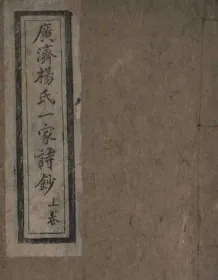 廣濟楊氏一家詩鈔上卷